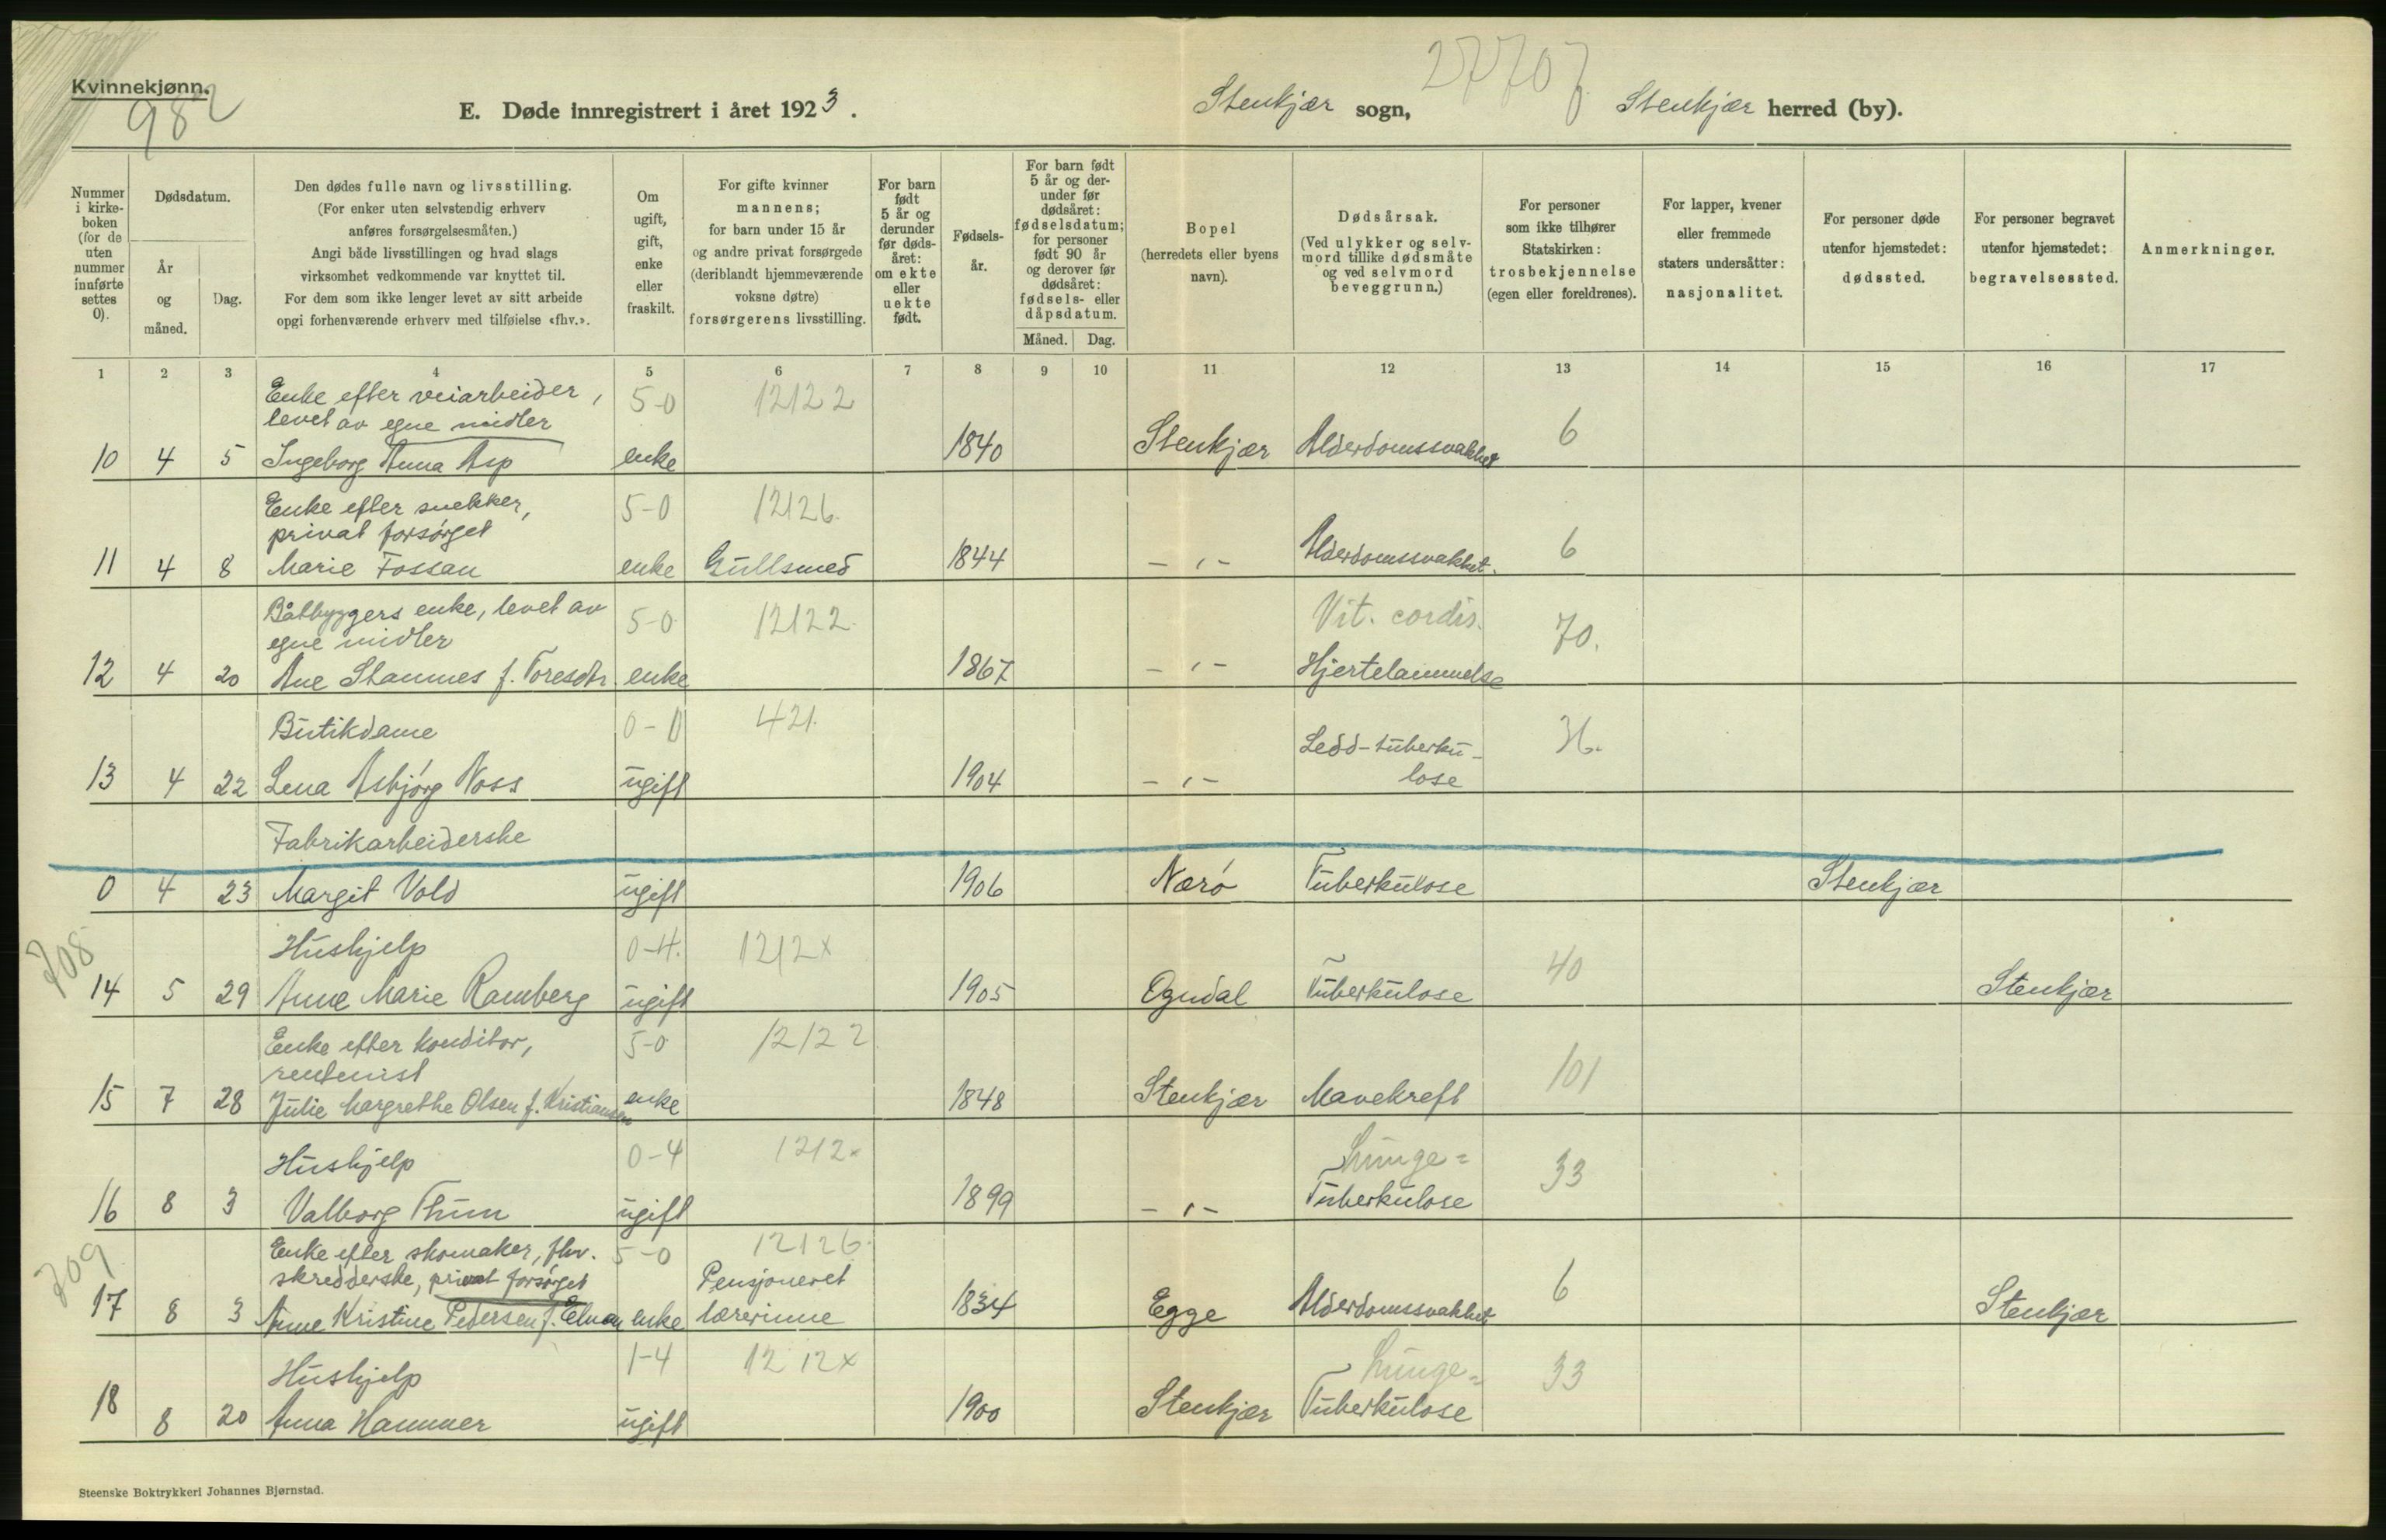 Kvinnekjønn.
982
E. Døde innregistrert i året 1923.
Stenkjær sogn,
27707
Stenkjær herred (by).
Nummer i kirkeboken (for de uten nummer innførte settes 0).
Dødsdatum.
År og måned.
Dag.
Den dødes fulle navn og livsstilling.
(For enker uten selvstendig erhverv
anføres forsørgelsesmåten.)
Angi både livsstillingen og hvad slags
virksomhet vedkommende var knyttet til.
For dem som ikke lenger levet av sitt arbeide
opgi forhenværende erhverv med tilføielse «fhv.».
Om ugift, gift, enke eller fraskilt.
For gifte kvinner
mannens;
for barn under 15 år
og andre privat forsørgede
(deriblandt hjemmeværende
voksne døtre)
forsørgerens livsstilling.
For barn født 5 år og derunder før dødsåret: om ekte eller uekte født.
Fødselsår.
For barn født 5 år og derunder før dødsåret: fødselsdatum; for personer født 90 år og derover før dødsåret: fødsels- eller dåpsdatum.
Måned. Dag.
Bopel
(herredets eller byens
navn).
Dødsårsak.
(Ved ulykker og selvmord tillike dødsmåte og ved selvmord beveggrunn.)
For personer
som ikke tilhører
Statskirken:
trosbekjennelse
(egen eller foreldrenes).
For lapper, kvener
eller fremmede
staters undersåtter:
nasjonalitet.
For personer døde
utenfor hjemstedet:
dødssted.
For personer begravet
utenfor hjemstedet:
begravelsessted.
Anmerkninger.
1 2 3 4 5 6 7 8 9 10 11 12 13 14 15 16 17
Enke efter veiarbeider, 5-0 12122
levet av egne midler
10 4 5 Ingeborg Anna Asp enke 1840 Stenkjær Alderdomssvakhet 6
Enke efter snekker, 5-0 12126
privat forsørget
11 4 8 Marie Fossan enke Gullsmed 1844 - " - Alderdomssvakhet. 6
Båtbyggers enke, levet av 5-0 12122 Vit. cordis.
egne midler 70.
12 4 20 Ane Stamnes f. Toresdtr enke 1867 - " - Hjertelammelse
Butikdame 0-0 421 Ledd-tuberku-
13 4 22 Lena Asbjørg Voss ugift 1904 - " - lose
Fabrikarbeiderske
0 4 23 Margit Vold ugift 1906 Nærø Tuberkulose Stenkjær
708
Hushjelp 0-4 1212x
14 5 29 Anne Marie Ramberg ugift 1905 Ogndal Tuberkulose 40 Stenkjær
Enke efter konditor, 5-0 12122
rentenist
15 7 28 Julie Margrethe Olsen f. Kristiansen enke 1848 Stenkjær Mavekreft 101
Hushjelp 0-4 1212x Lunge=
16 8 3 Valborg Thun ugift 1899 - " - Tuberkulose 33
709
Enke efter skomaker, fhv. 5-0 12126
skredderske, privat forsørget Pensjoneret
17 8 3 Anne Kristine Pedersen f. enke lærerinne 1834 Egge Alderdomssvakhet 6 Stenkjær
Hushjelp 1-4 1212x Lunge=
18 8 20 Anna Hammer ugift 1900 Stenkjær Tuberkulose 33
Steenske Boktrykkeri Johannes Bjørnstad.